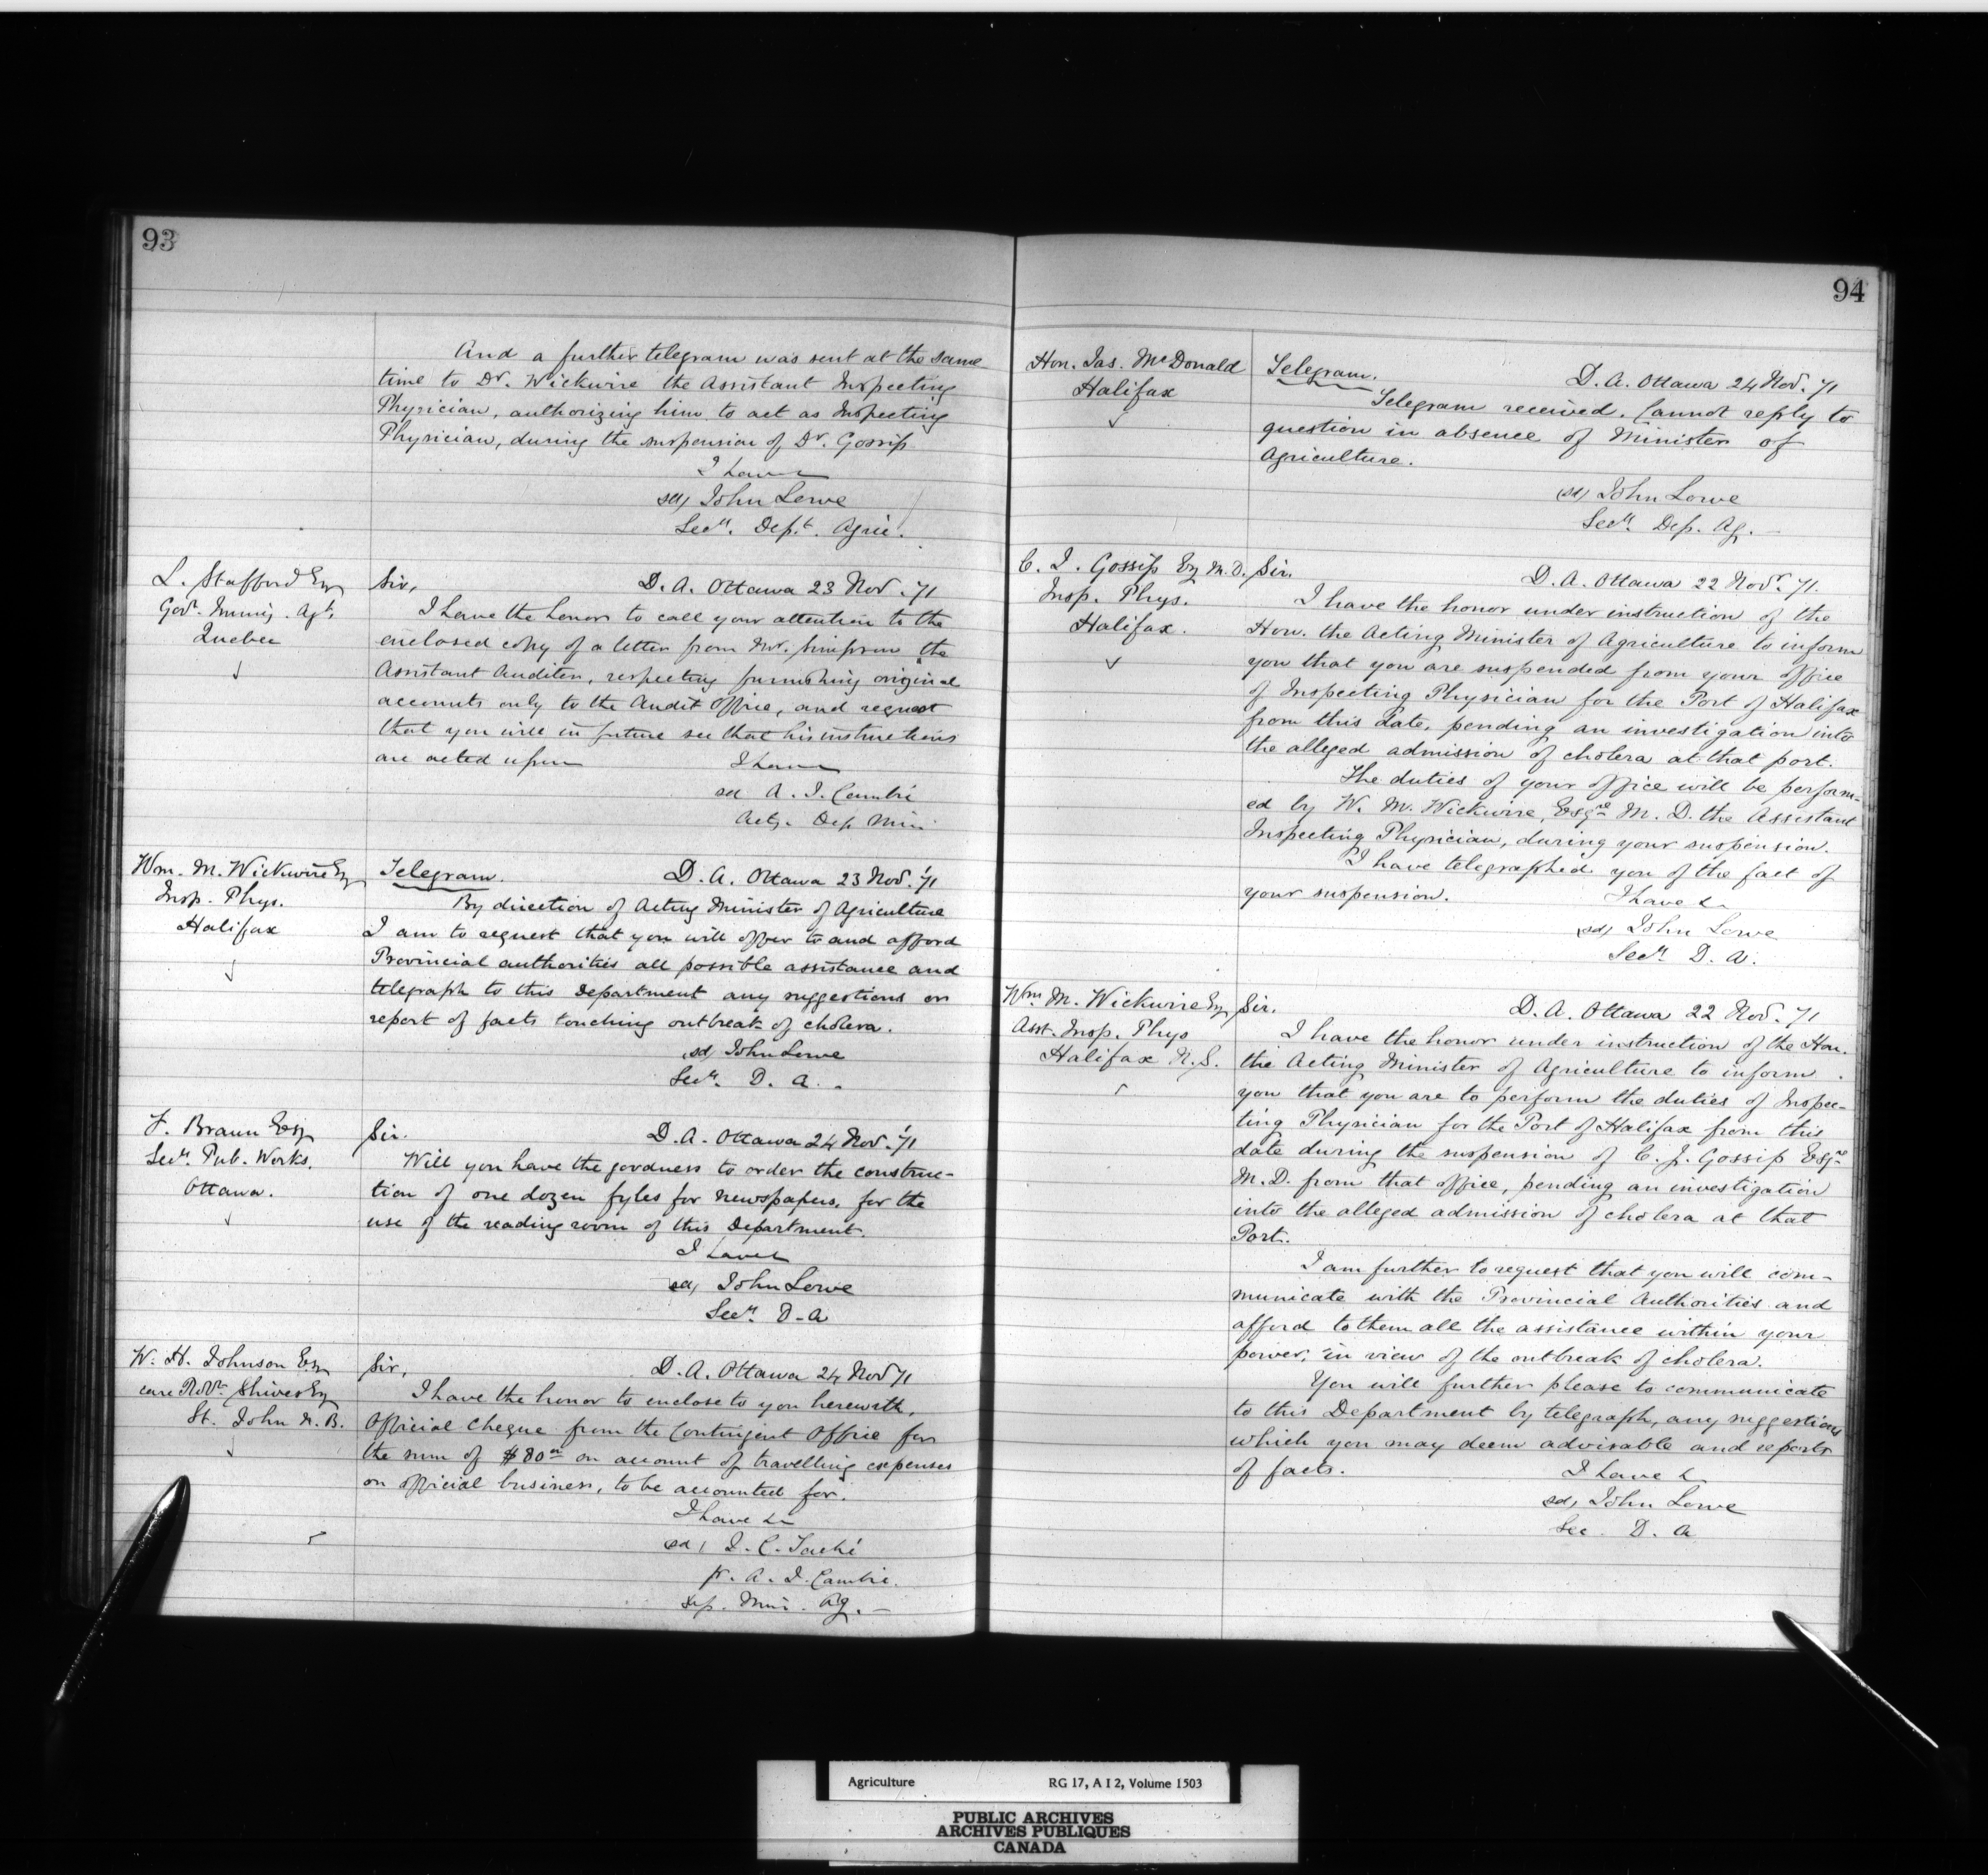 93
And a further telegram was sent at the same
time to Dr. Wickwire the Assistant Inspecting
Physician, authorizing him to act as Inspecting
Physician, during the suspension of Dr. Gossip
I have
sd, John Lowe
Secy. Dept. Agric.
L. Stafford Esq
Govt. Immig. Agt.
Quebec
Sir,
D. A. Ottawa 23 Nov. '71
I have the honor to call your attention to the
enclosed copy of a letter from Mr. Simpson the
Assistant Auditor, respecting furnishing original
accounts only to the Audit Office, and request
that you will in future see that his instructions
are acted upon
I have
sd A. J. Cambie
Actg. Dep Min
Wm. M. Wickwire Esq
Insp. Phys.
Halifax
Telegram.
D. A. Ottawa 23 Nov. '71
By direction of Acting Minister of Agriculture
I am to request that you will offer to and afford
Provincial authorities all possible assistance and
telegraph to this Department any suggestions or
report of facts touching outbreak of cholera.
sd, John Lowe
Secy. D. A.
F. Braun Esq
Secy. Pub. Works.
Ottawa.
Sir.
D. A. Ottawa 24 Nov. '71
Will you have the goodness to order the construc-
tion of one dozen fyles for newspapers, for the
use of the reading room of this Department.
I have
sd, John Lowe
Secy. D. A
W. H. Johnson Esq
care Robt. Shives Esq
St. John N. B.
Sir,
D. A. Ottawa 24 Nov 71
I have the honor to enclose to you herewith,
Official Cheque from the Contingent Office for
the sum of $80 on account of travelling expenses
on official business, to be accounted for.
I have &c
sd, J. C. Taché
pr. A. J. Cambie.
Dep. Min. Ag.
94
Hon. Jas. McDonald
Halifax
Telegram.
D. A. Ottawa 24 Nov. '71
Telegram received. Cannot reply to
question in absence of Minister of
Agriculture.
sd, John Lowe
Secy. Dep. Ag.
C. J. Gossip Esq M. D.
Insp. Phys.
Halifax.
Sir.
D. A. Ottawa 22 Novr. '71.
I have the honor under instruction of the
Hon. the Acting Minister of Agriculture to inform
you that you are suspended from your office
of Inspecting Physician for the Port of Halifax
from this date, pending an investigation into
the alleged admission of cholera at that port.
The duties of your office will be perform-
ed by W. M. Wickwire, Esqre M. D. the Assistant
Inspecting Physician, during your suspension.
I have telegraphed you of the fact of
your suspension.
I have &c
sd, John Lowe
Secy. D. A.
Wm. M. Wickwire Esq
Asst. Insp. Phys
Halifax N. S.
Sir.
D. A. Ottawa 22 Nov. '71
I have the honor under instruction of the Hon.
the Acting Minister of Agriculture to inform
you that you are to perform the duties of Inspec-
ting Physician for the Port of Halifax from this
date during the suspension of C. J. Gossip Esqre
M. D. from that office, pending an investigation
into the alleged admission of cholera at that
Port.
I am further to request that you will com-
municate with the Provincial Authorities and
afford to them all the assistance within your
power, in view of the outbreak of cholera.
You will further please to communicate
to this Department by telegraph, any suggestions
which you may deem advisable and reports
of facts.
I have &
sd, John Lowe
Sec. D. A
Agriculture RG 17, A I 2, Volume 1503
PUBLIC ARCHIVES
ARCHIVES PUBLIQUES
CANADA